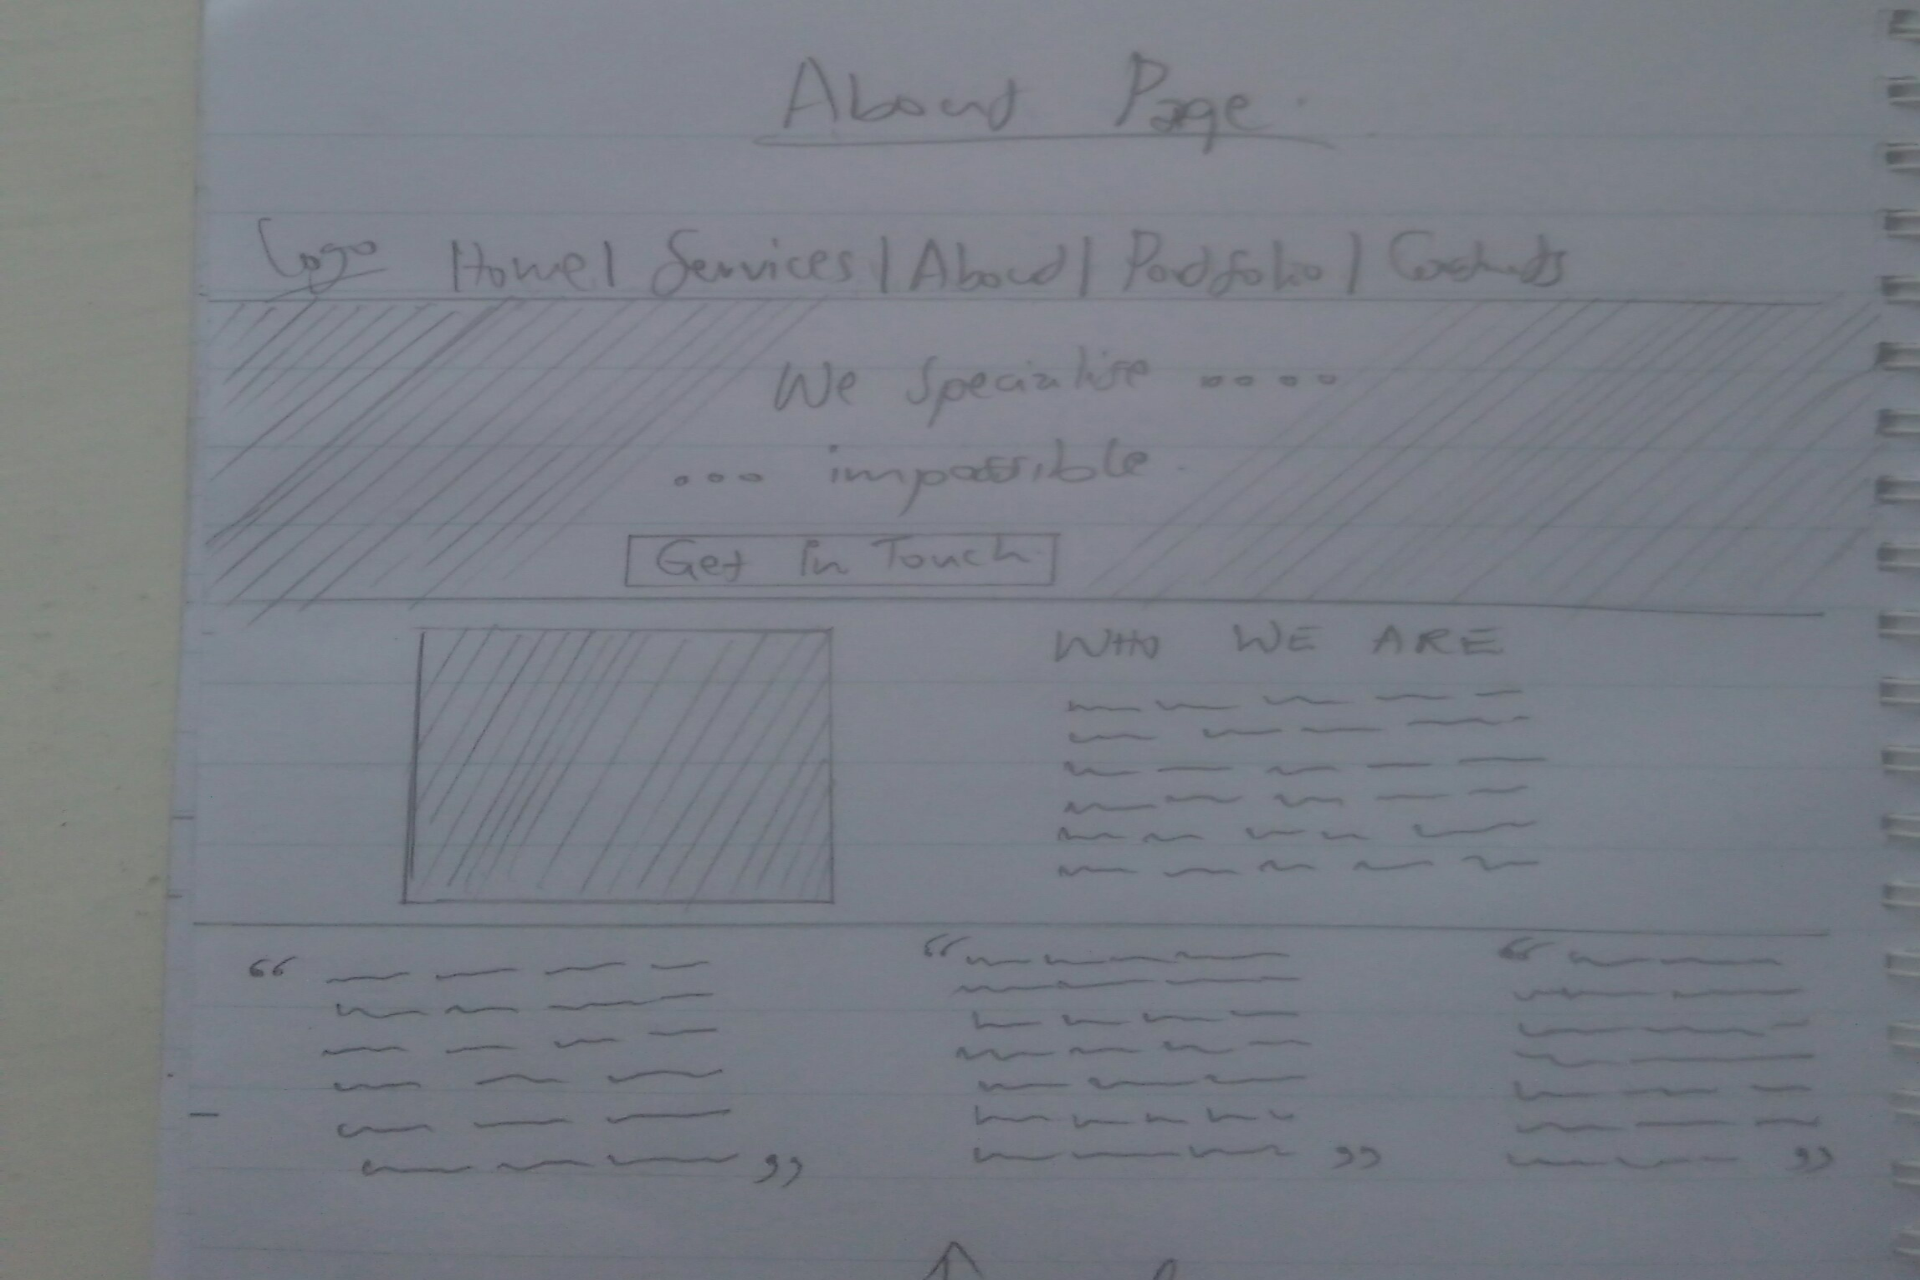 About Page
Logo Home | Services | About | Portfolio | Contacts
We specialise ....
... impossible
Get in Touch
WHO WE ARE
“ ”
“ ”
“ ”